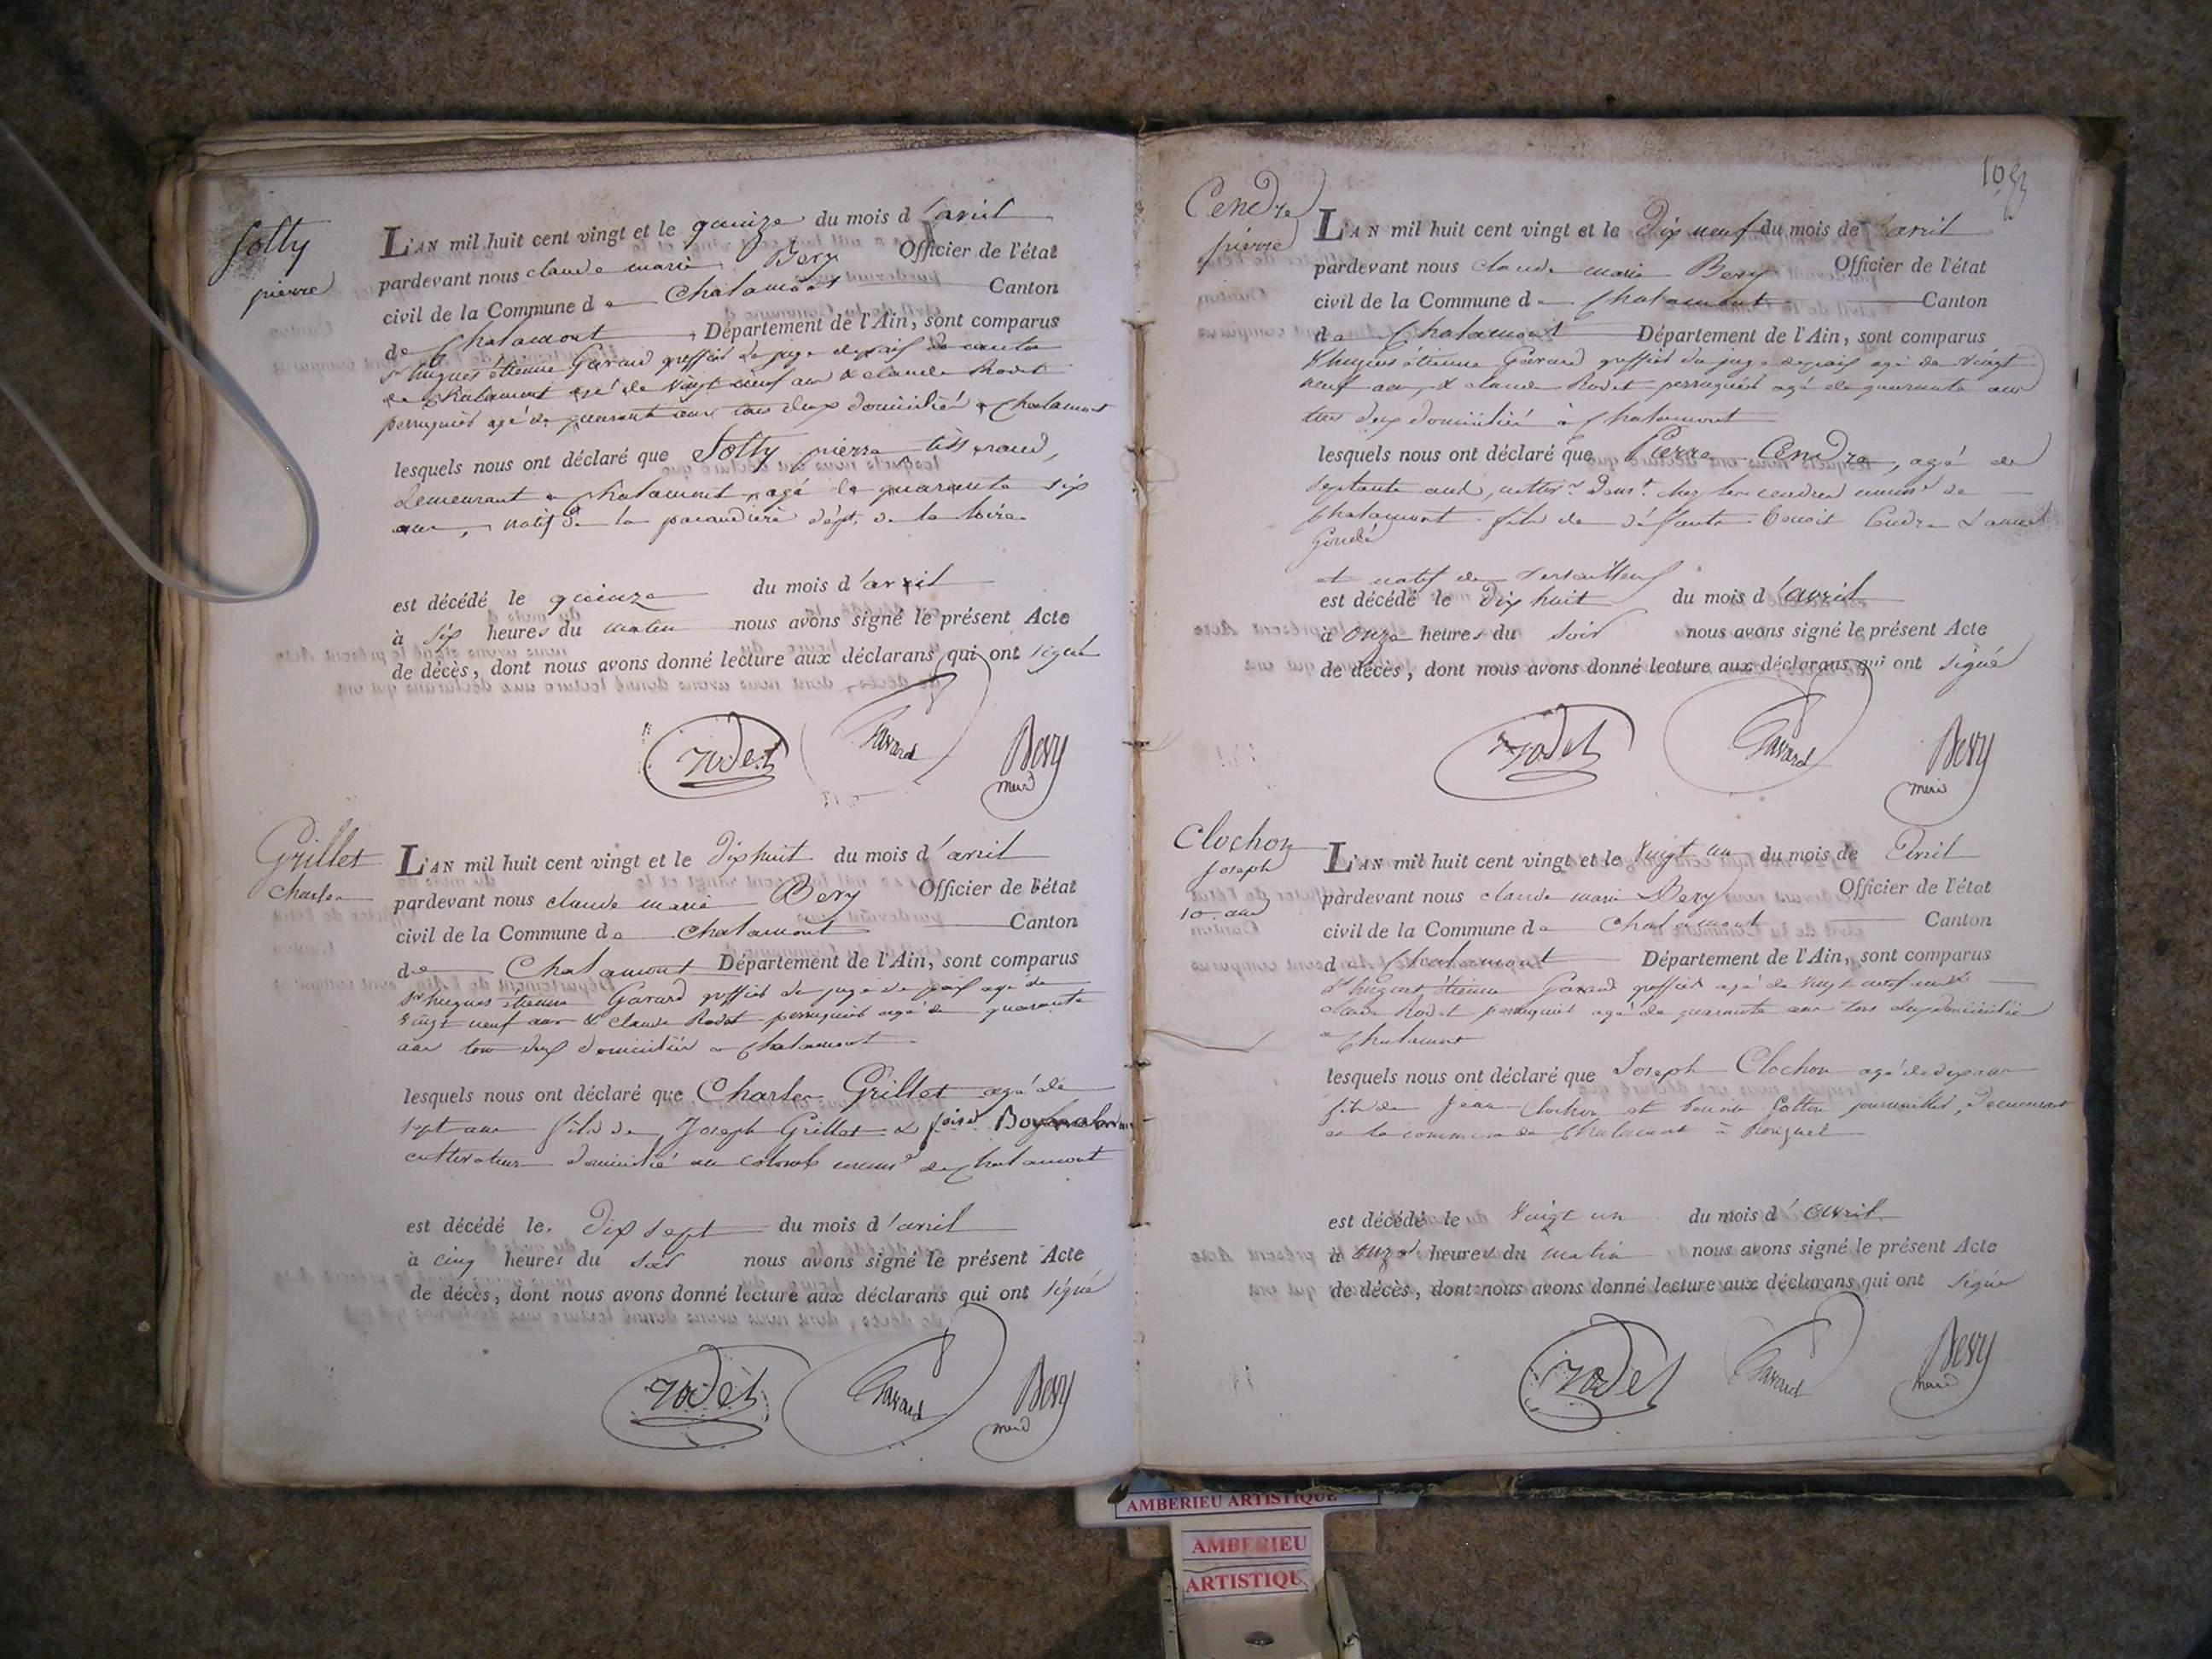 Jolly
pierre
L'AN mil huit cent vingt et le quinze du mois d'avril
pardevant nous claude marie Bery Officier de l'état
civil de la Commune de Chalamont Canton
de Chalamont, Département de l'Ain, sont comparus
Sr hugues étienne Gavard greffier de juge de paix du canton
de Chalamont agé de vingt neuf ans & claude Rodet
perruquier agé de quarante ans tous deux domiciliés a Chalamont
lesquels nous ont déclaré que Jolly pierre tisserand,
demeurant a Chalamont, agé de quarante six
ans, natif de la pacaudière dépt. de la loire
est décédé le quinze du mois d'avril
à six heures du matin nous avons signé le présent Acte
de décès, dont nous avons donné lecture aux déclarans qui ont signé
Rodet Gavard Bery
maire
Grillet
Charles
L'AN mil huit cent vingt et le dix huit du mois d'avril
pardevant nous claude marie Bery Officier de l'état
civil de la Commune de Chalamont Canton
de Chalamont Département de l'Ain, sont comparus
Sr hugues étienne Gavard greffier de juge de paix agé de
vingt neuf ans & claude Rodet perruquier agé de quarante
ans tous deux domiciliés a Chalamont
lesquels nous ont déclaré que Charles Grillet agé de
sept ans fils de Joseph Grillet &
cultivateur domicilié au colomb de Chalamont
est décédé le dix sept du mois d'avril
à cinq heures du soir nous avons signé le présent Acte
de décès, dont nous avons donné lecture aux déclarans qui ont signé
Rodet Gavard Bery
maire
Cendre
pierre
L'AN mil huit cent vingt et le Dix neuf du mois de avril
pardevant nous claude marie Bery Officier de l'état
civil de la Commune de Chalamont Canton
de Chalamont Département de l'Ain, sont comparus
Sr hugues étienne Gavard greffier du juge de paix agé de vingt
neuf ans, & claude Rodet perruquier agé de quarante ans
tous deux domiciliés à Chalamont
lesquels nous ont déclaré que Pierre Cendre, agé de
septante ans, chez les cendres de
Chalamont fils de défunts Benoit Cendre &
et natif de
est décédé le dix huit du mois d'avril
à onze heures du soir nous avons signé le présent Acte
de décès, dont nous avons donné lecture aux déclarans qui ont signé
Rodet Gavard Bery
maire
Clochon
Joseph
10 ans
L'AN mil huit cent vingt et le vingt un du mois de Avril
pardevant nous claude marie Bery Officier de l'état
civil de la Commune de Chalamont Canton
d Chalamont Département de l'Ain, sont comparus
Sr hugues étienne Gavard greffier agé de vingt neuf ans &
claude Rodet perruquier agé de quarante ans tous deux domiciliés
a Chalamont
lesquels nous ont déclaré que Joseph Clochon agé de dix ans
fils de Jean Clochon et journaillier, demeurant
en la commune de Chalamont à
est décédé le vingt un du mois d'avril
à onze heures du matin nous avons signé le présent Acte
de décès, dont nous avons donné lecture aux déclarans qui ont signé
Rodet Gavard Bery
maire
AMBERIEU ARTISTIQUE
AMBERIEU
ARTISTIQU